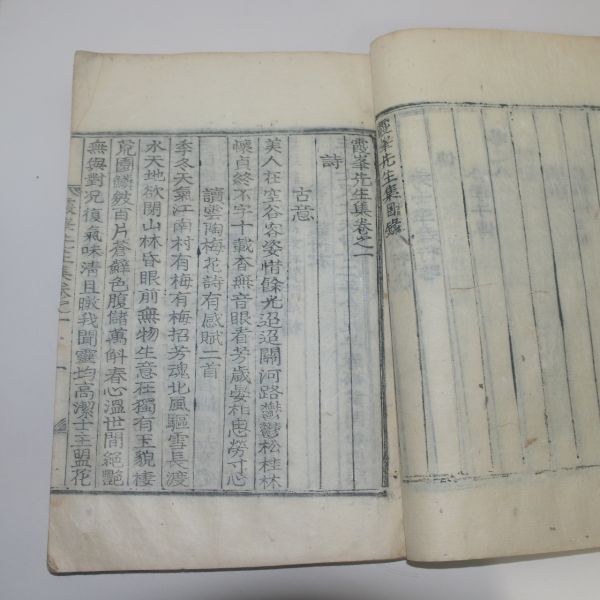 霞峯先生集目錄
霞峯先生集卷之一
詩
古意
美人在空谷容姿惜餘光迢迢關河路鬱鬱松桂林
懷貞終不字十載杳無音眼看芳歲晏相思勞寸心
讀雲陶梅花詩有感賦二首
季冬天氣江南村有梅有梅招芳魂北風驅雪長渡
水天地欲閉山林昏眼前無物生意在獨有玉貌棲
荒園鱗皴百片蒼蘚色腹儲萬斛春心溫世間絶艶
無與對況復氣味清且暾我聞靈均高潔士主盟花